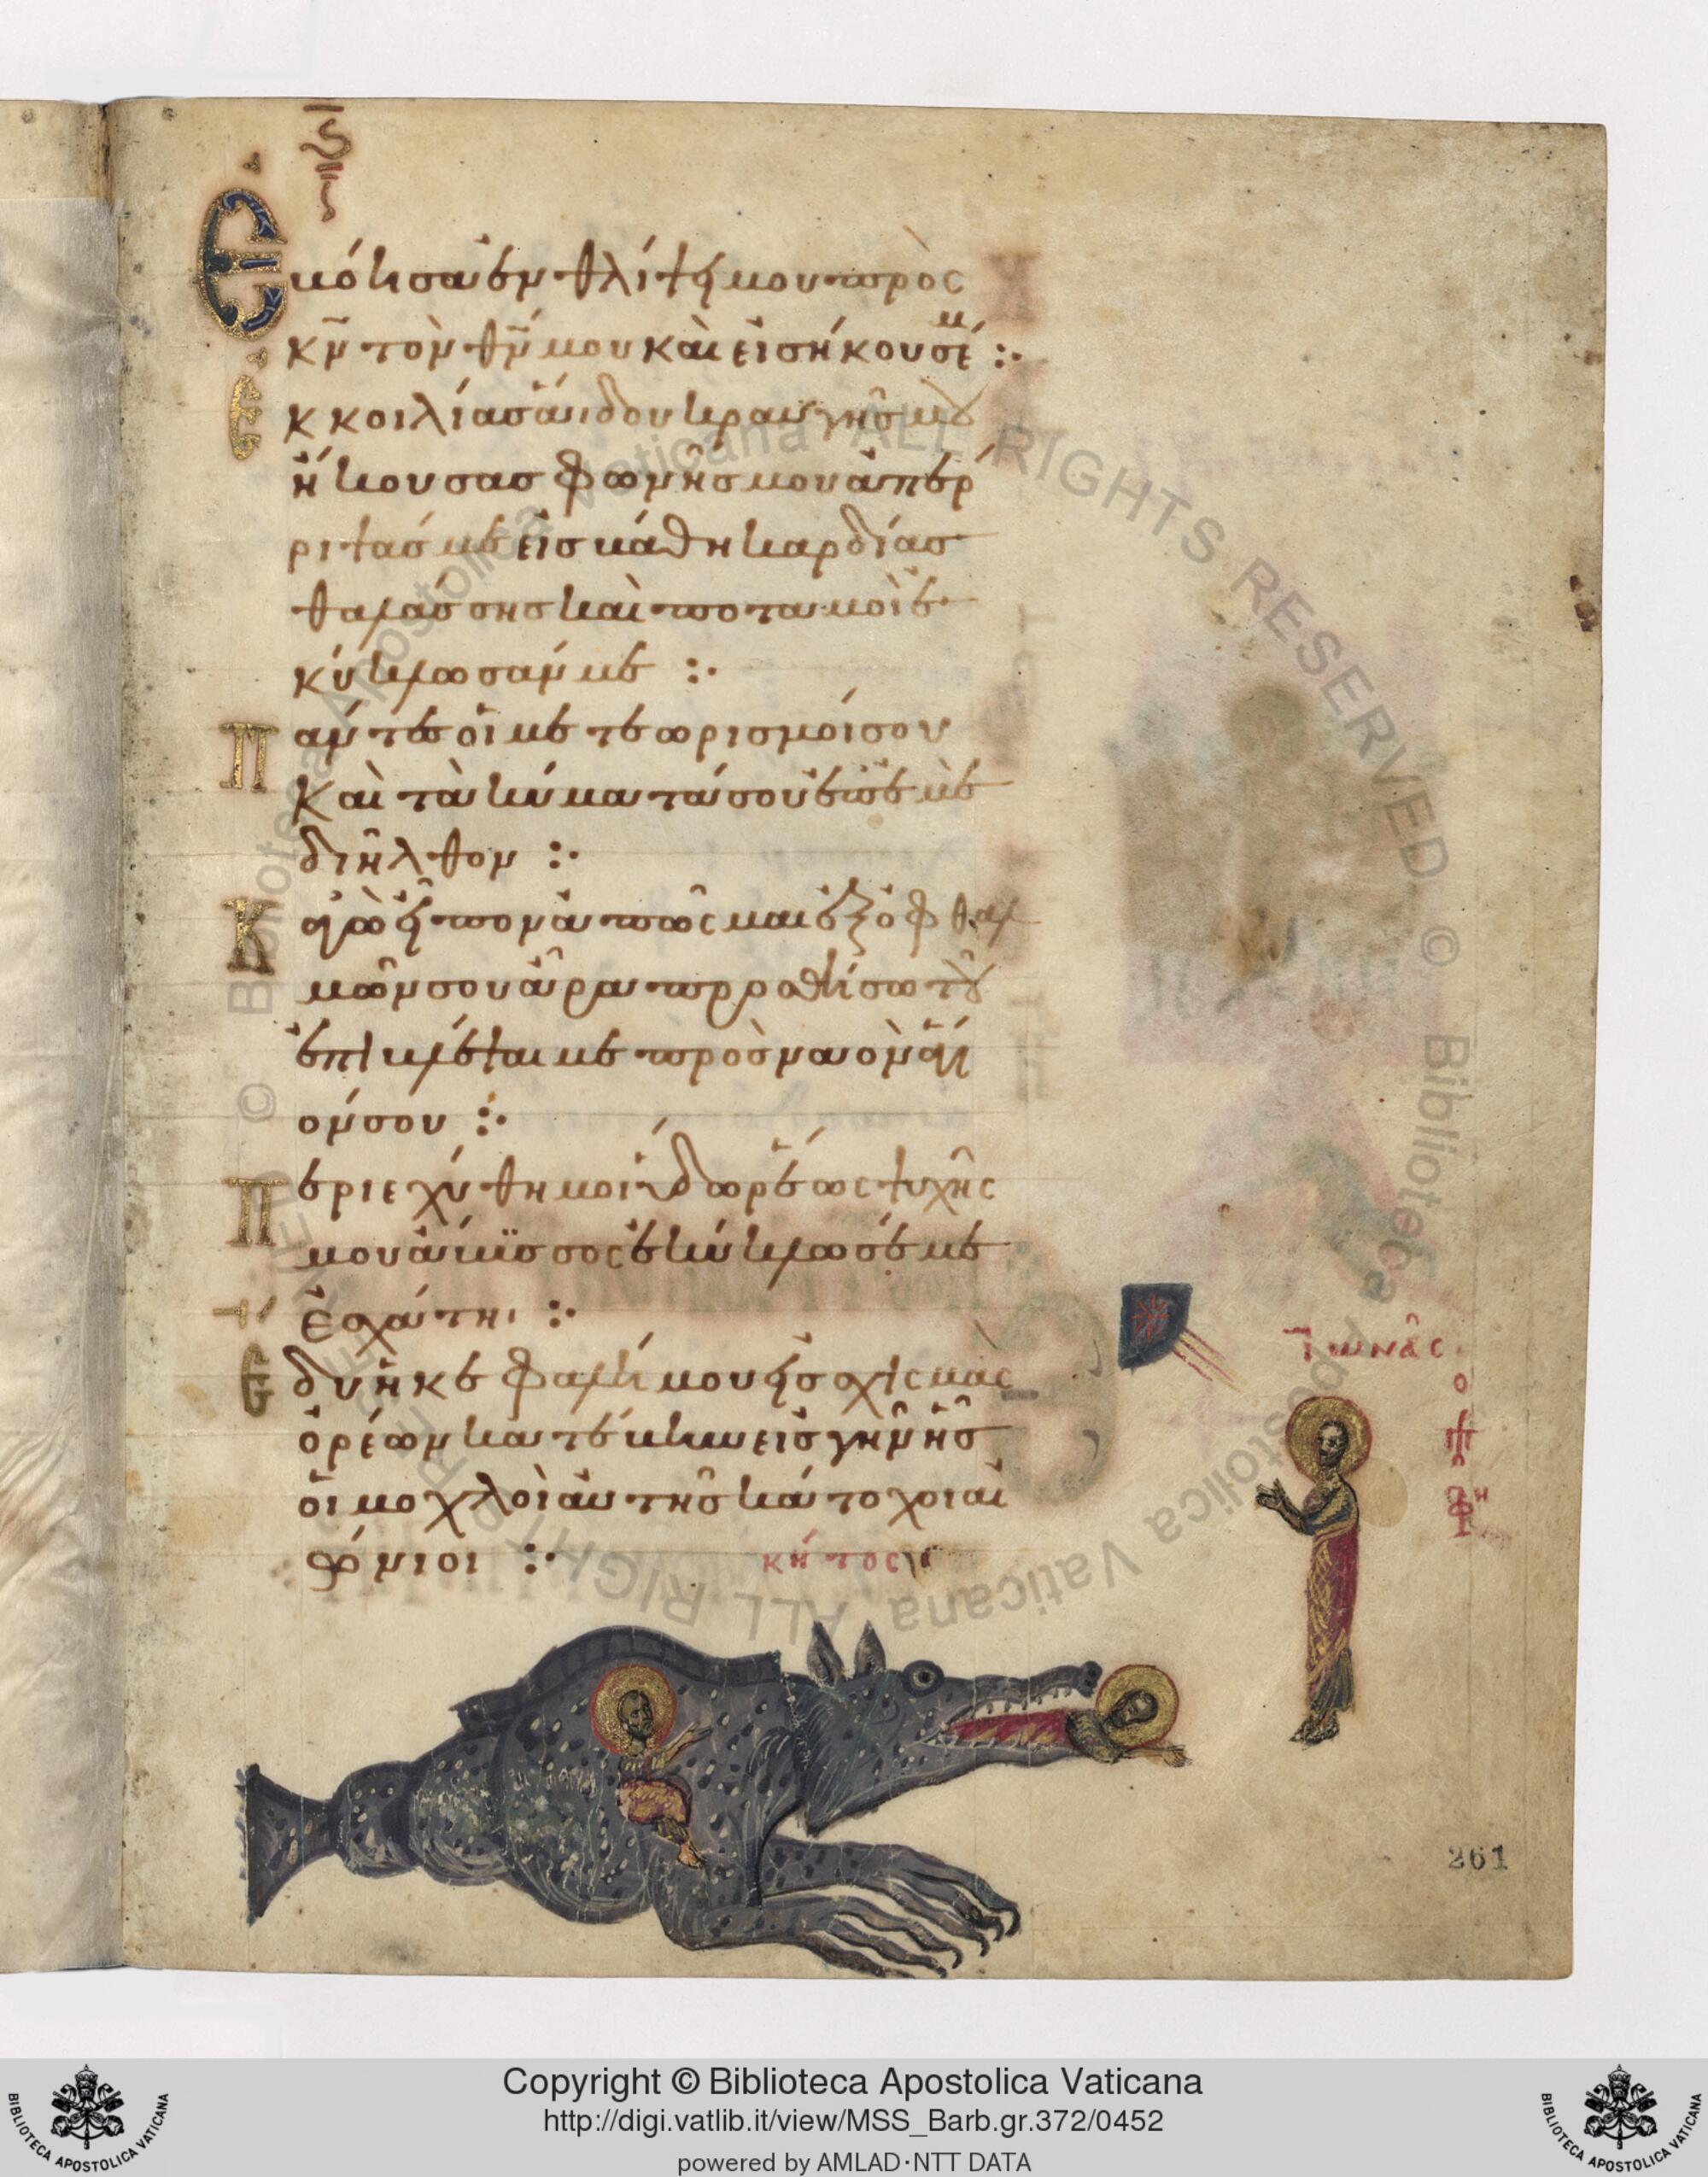 ς
Ἐβόησα ἐν θλίψει μου πρὸς
κν̄ τὸν θν̄ μου καὶ εἰσήκουσέ μ :·
Ἐκ κοιλίασ ἅιδου κραυγῆσ μου
ἤκουσασ φωνῆσ μου ἀπέρ
ριψάσ με εἰσ βάθη καρδίασ
θαλάσσησ καὶ ποταμοὶ ἐ
κύκλωσάν με :·
Πάντεσ οἱ μετεωρισμοί σου
Καὶ τὰ κύματά σου ἐπ ἐμὲ
διῆλθον :·
Κἀγὼ εἶπον ἀπῶσμαι ἐξ ὀφθαλ
μῶν σου ἆρα προσθήσω τοῦ
ἐπιβλέψαι με πρὸσ ναὸν ἅγι
όν σου :·
Περιεχύθη μοι ὕδωρ ἕως ψυχῆς
μου ἄβϋσσος ἐκύκλωσέ με
ἐσχάτη :·
Ἔδυ ἡ κεφαλή μου εἰσ σχισμὰς
ὀρέων κατέβην εἰσ γῆν ἧσ
οἱ μοχλοὶ αὐτῆσ κάτοχοι αἰ
ώνιοι :·
κῆτος
Ἰωνᾶς
ὁ
προφη
261
© Biblioteca Apostolica Vaticana ALL RIGHTS RESERVED © Biblioteca Apostolica Vaticana ALL RIGHTS RESERVED
Copyright © Biblioteca Apostolica Vaticana
http://digi.vatlib.it/view/MSS_Barb.gr.372/0452
powered by AMLAD·NTT DATA
BIBLIOTECA APOSTOLICA VATICANA
BIBLIOTECA APOSTOLICA VATICANA